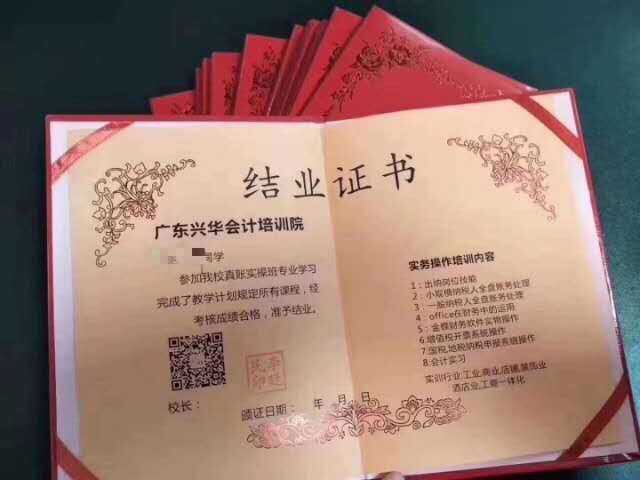 结业证书
广东兴华会计培训院
同学
参加我校真账实操班专业学习
完成了教学计划规定所有课程,经
考核成绩合格,准予结业。
校长:
颁证日期: 年 月 日
实务操作培训内容
1:出纳岗位技能
2:小规模纳税人全盘账务处理
3:一般纳税人全盘账务处理
4:office在财务中的运用
5:金蝶财务软件实物操作
6:增值税开票系统操作
7:国税,地税纳税申报系统操作
8:会计实习
实训行业:工业,商业,店铺,装饰业
酒店业,工商一体化